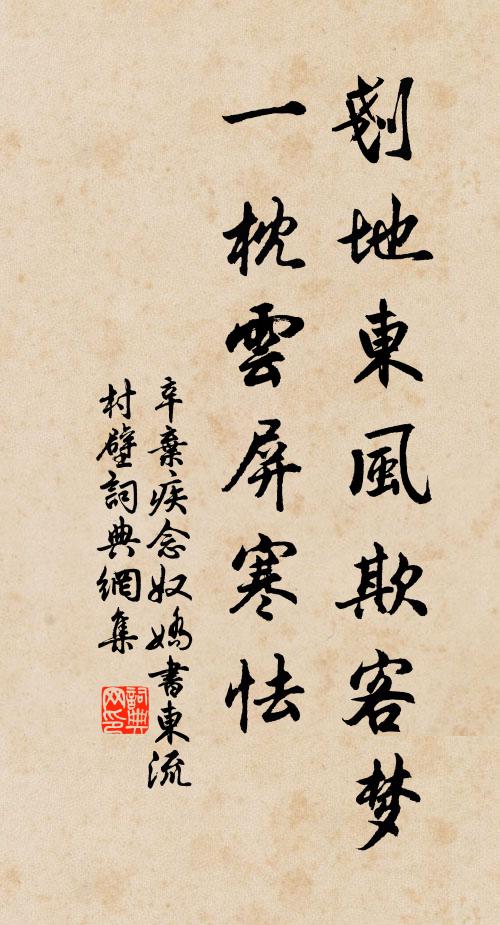 剗地東風欺客梦
一枕雲屏寒怯
辛棄疾念奴嬌書東流
村壁詞典網集
詞典网印